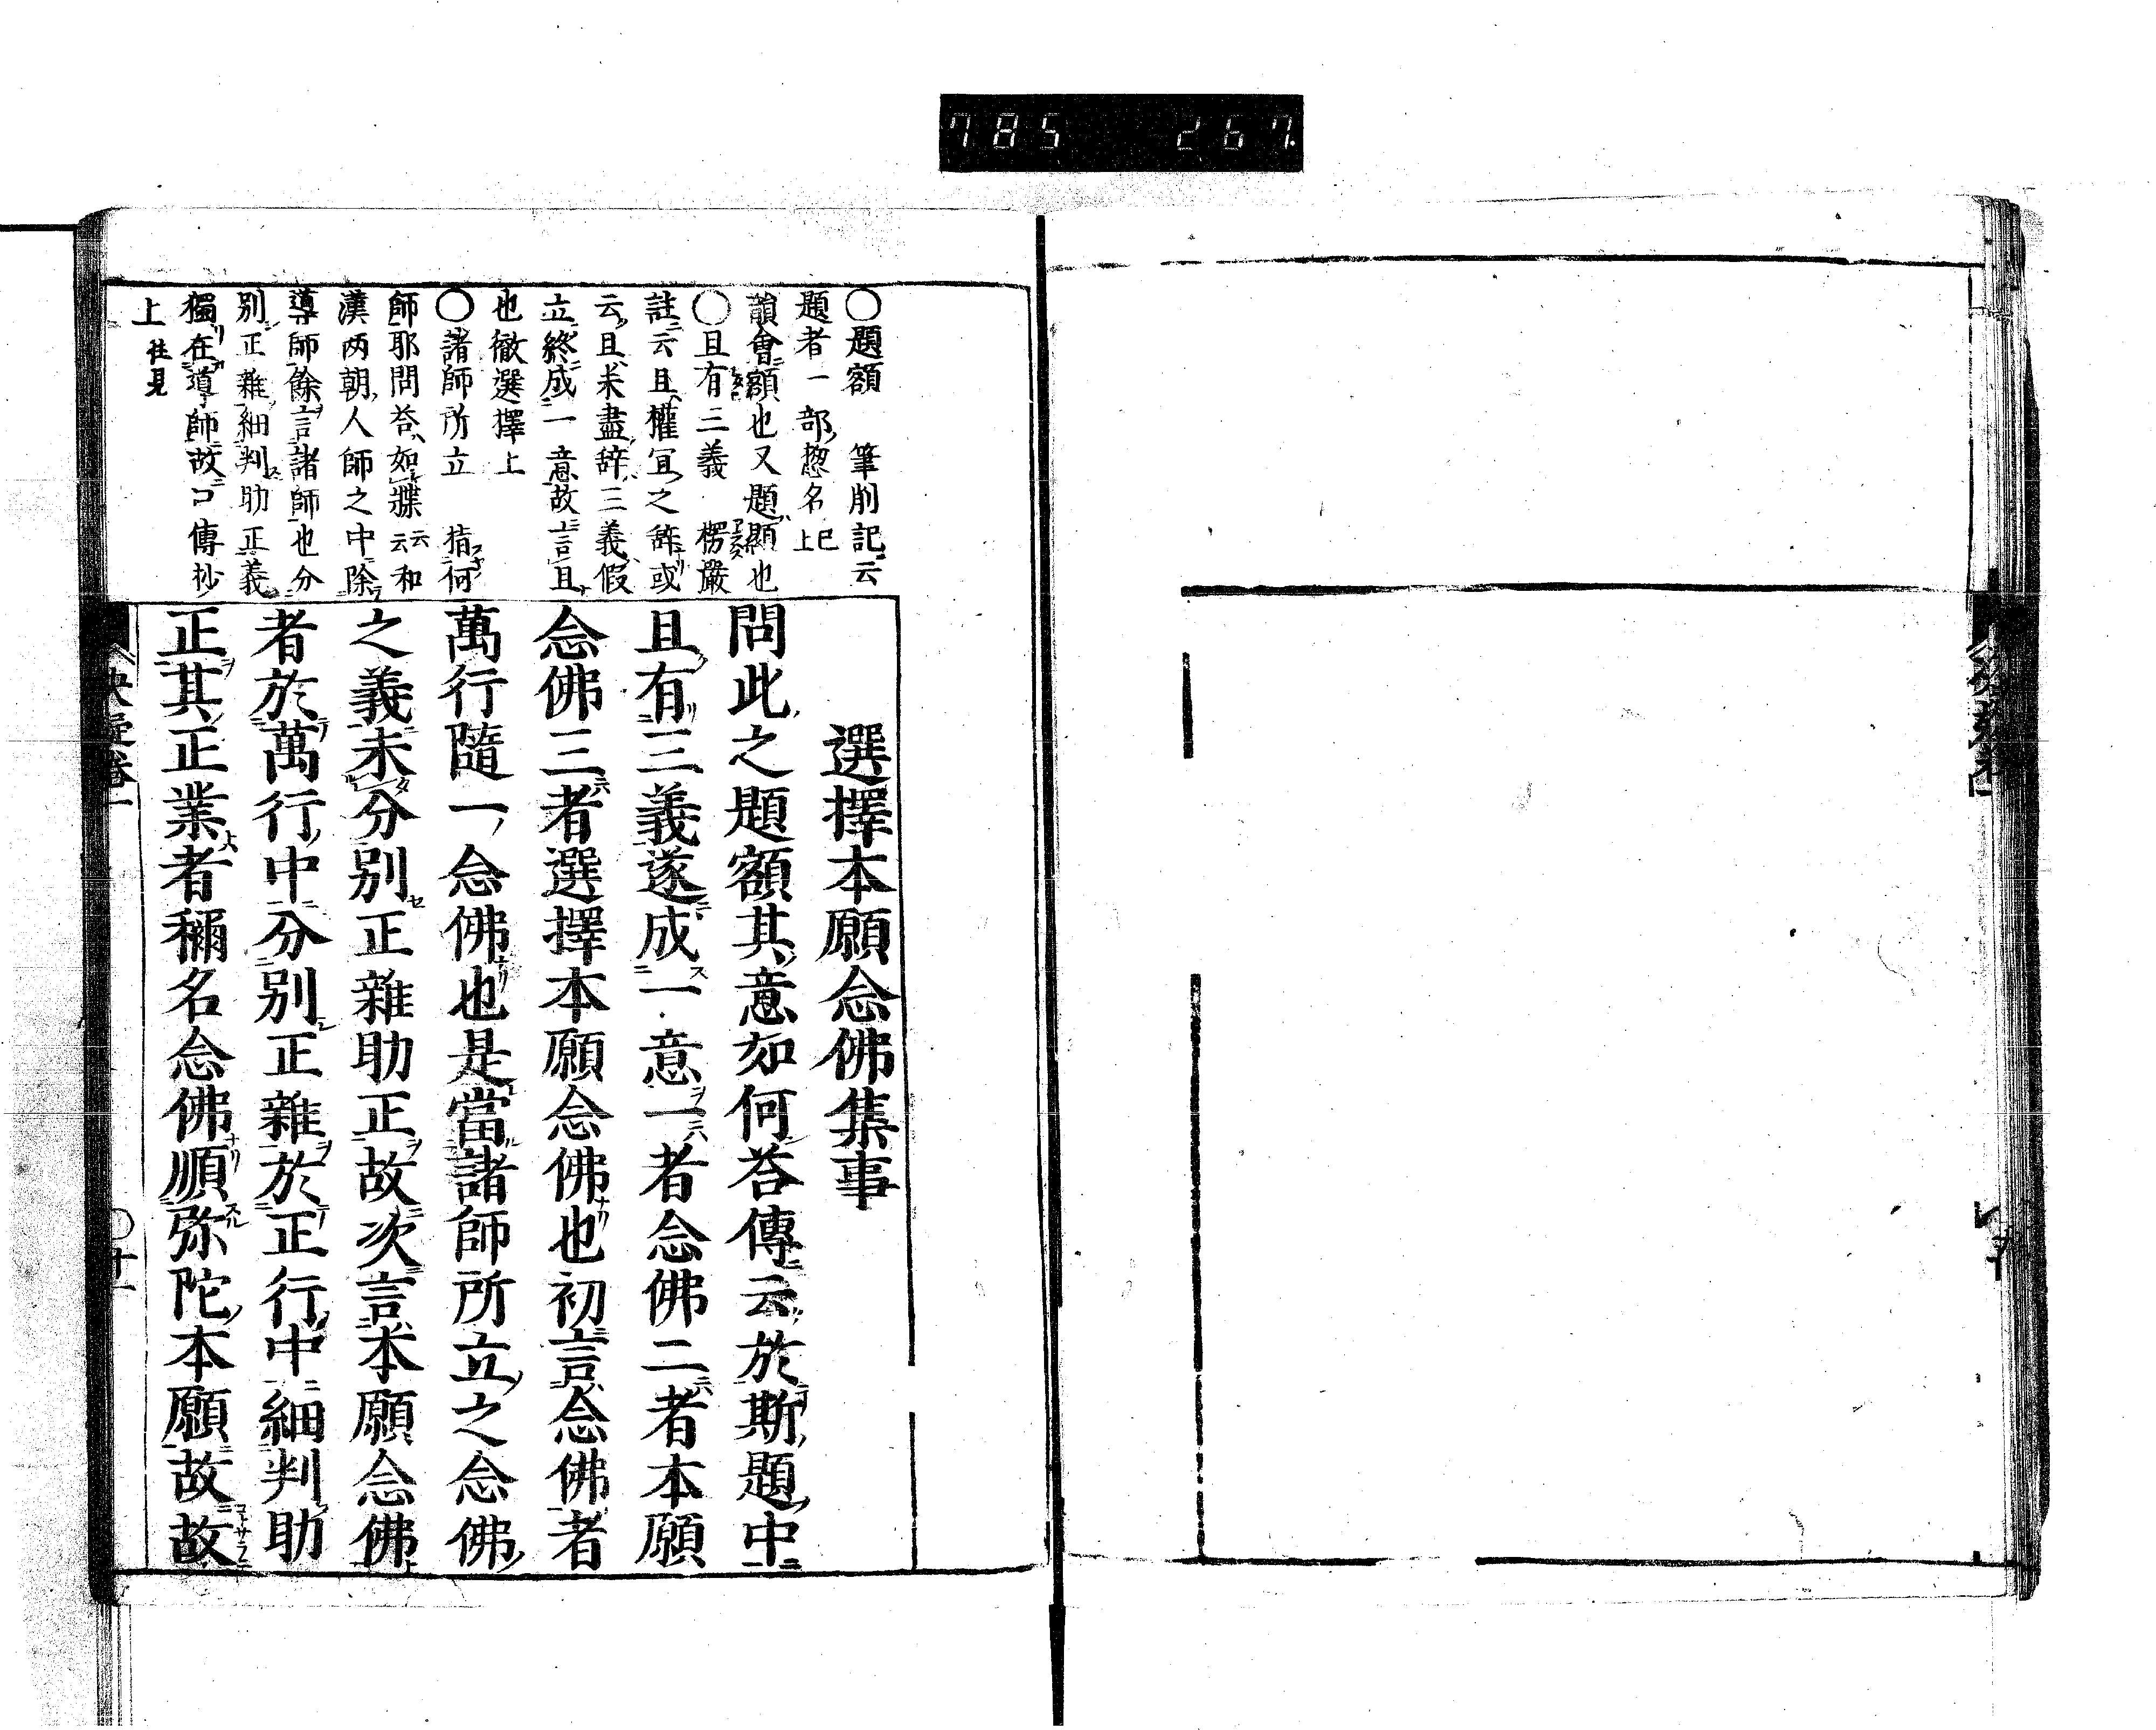 785 267.
〇題額 筆削記云
題者一部惣名已上
韻會額也又題顯也
〇且有三義 楞嚴
註云且權宜之辞或
云且未盡辞三義假
立終成一意故言且
也徹選擇上
〇諸師所立 猜何
師耶問答如牒云云和
漢两朝人師之中除
導師餘言諸師也分
別正雜細判助正義
獨在導師故口傳抄
上往見
選擇本願念佛集事
問此之題額其意如何荅傳云於斯題中
且有三義遂成一意一者念佛二者本願
念佛三者選擇本願念佛也初言念佛者
萬行隨一念佛也是當諸師所立之念佛
之義未分別正雜助正故次言本願念佛
者於萬行中分別正雜於正行中細判助
正其正業者稱名念佛順弥陀本願故故
決疑卷一
〇十一